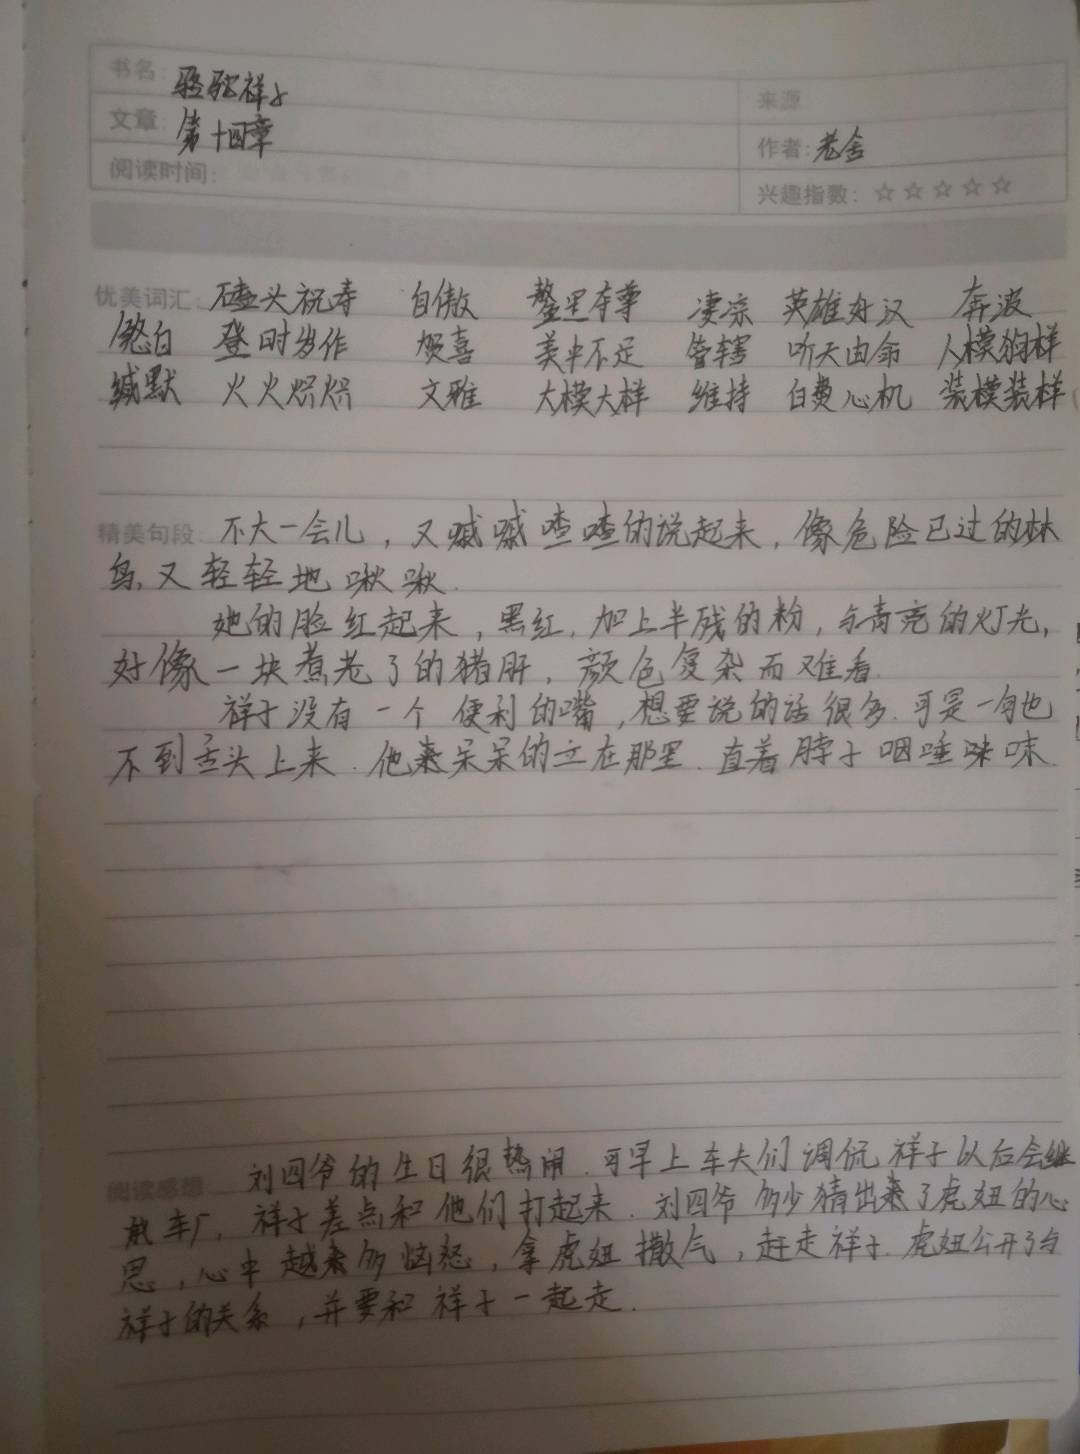 书名: 骆驼祥子
来源
文章: 第十四章
作者: 老舍
阅读时间:
兴趣指数: ☆☆☆☆☆
优美词汇: 磕头祝寿 自傲 螯里夺尊 凄凉 英雄好汉 奔波
煞白 登时发作 贺喜 美中不足 管辖 听天由命 人模狗样
缄默 火火炽炽 文雅 大模大样 维持 白费心机 装模装样
精美句段: 不大一会儿,又嘁嘁喳喳的说起来,像危险已过的林
鸟,又轻轻地啾啾.
她的脸红起来,黑红,加上半残的粉,与青亮的灯光,
好像一块煮老了的猪肝,颜色复杂而难看.
祥子没有一个便利的嘴,想要说的话很多.可是一句也
不到舌头上来.他呆呆的立在那里.直着脖子咽唾味味
阅读感想: 刘四爷的生日很热闹.可早上车夫们调侃祥子以后会继
承车厂,祥子差点和他们打起来.刘四爷多少猜出来了虎妞的心
思,心中越来多恼怒,拿虎妞撒气,赶走祥子.虎妞公开了与
祥子的关系,并要和祥子一起走.